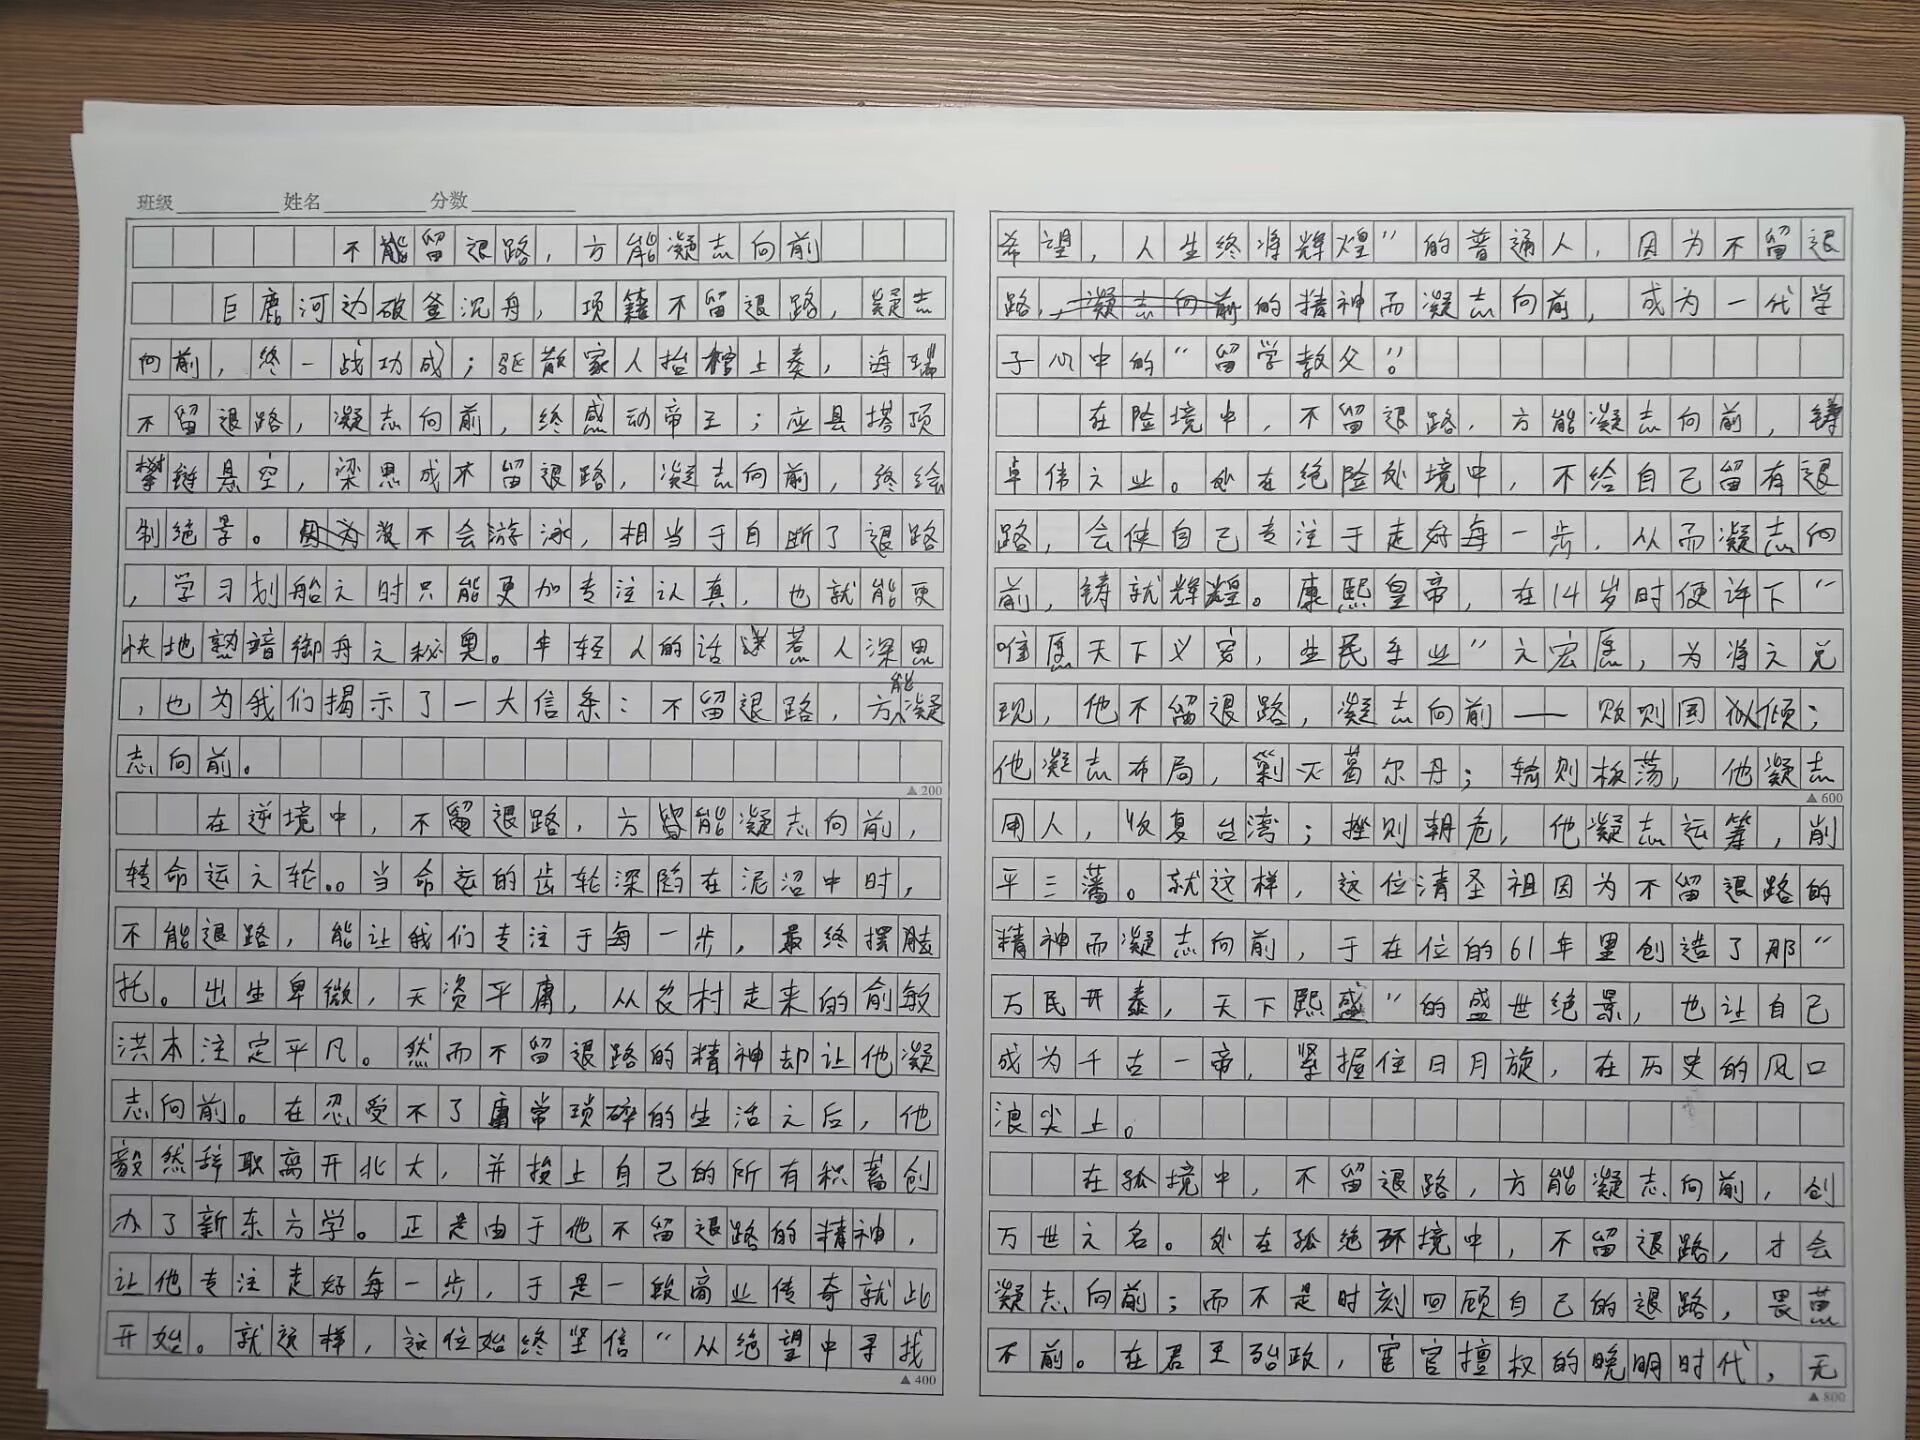 班级 姓名 分数
不能留退路，方能凝志向前
巨鹿河边破釜沉舟，项籍不留退路，凝志
向前，终一战功成；驱散家人抬棺上奏，海瑞
不留退路，凝志向前，终感动帝王；应县塔顶
攀链悬空，梁思成不留退路，凝志向前，终绘
制绝景。没不会游泳，相当于自断了退路
，学习划船之时只能更加专注认真，也就能更
快地熟谙御舟之秘奥。年轻人的话惹人深思
，也为我们揭示了一大信条：不留退路，方能凝
志向前。
▲200
在逆境中，不留退路，方能凝志向前，
转命运之轮。。当命运的齿轮深陷在泥沼中时，
不能退路，能让我们专注于每一步，最终摆脱
托。出生卑微，天资平庸，从农村走来的俞敏
洪本注定平凡。然而不留退路的精神却让他凝
志向前。在忍受不了庸常琐碎的生活之后，他
毅然辞职离开北大，并投上自己的所有积蓄创
办了新东方学。正是由于他不留退路的精神，
让他专注走好每一步，于是一段商业传奇就此
开始。就这样，这位始终坚信“从绝望中寻找
▲400
希望，人生终将辉煌”的普通人，因为不留退
路，的精神而凝志向前，成为一代学
子心中的“留学教父”。
在险境中，不留退路，方能凝志向前，铸
卓伟之业。处在绝险处境中，不给自己留有退
路，会使自己专注于走好每一步，从而凝志向
前，铸就辉煌。康熙皇帝，在14岁时便许下“
唯愿天下乂安，生民乐业”之宏愿，为将之兑
现，他不留退路，凝志向前——败则国倾；
他凝志布局，剿灭葛尔丹；输则板荡，他凝志
▲600
用人，收复台湾；挫则朝危，他凝志运筹，削
平三藩。就这样，这位清圣祖因为不留退路的
精神而凝志向前，于在位的61年里创造了那“
万民开泰，天下熙盛”的盛世绝景，也让自己
成为千古一帝，紧握住日月旋，在历史的风口
浪尖上。
在孤境中，不留退路，方能凝志向前，创
万世之名。处在孤绝环境中，不留退路，才会
凝志向前；而不是时刻回顾自己的退路，畏葸
不前。在君王殆政，宦官擅权的晚明时代，无
▲800